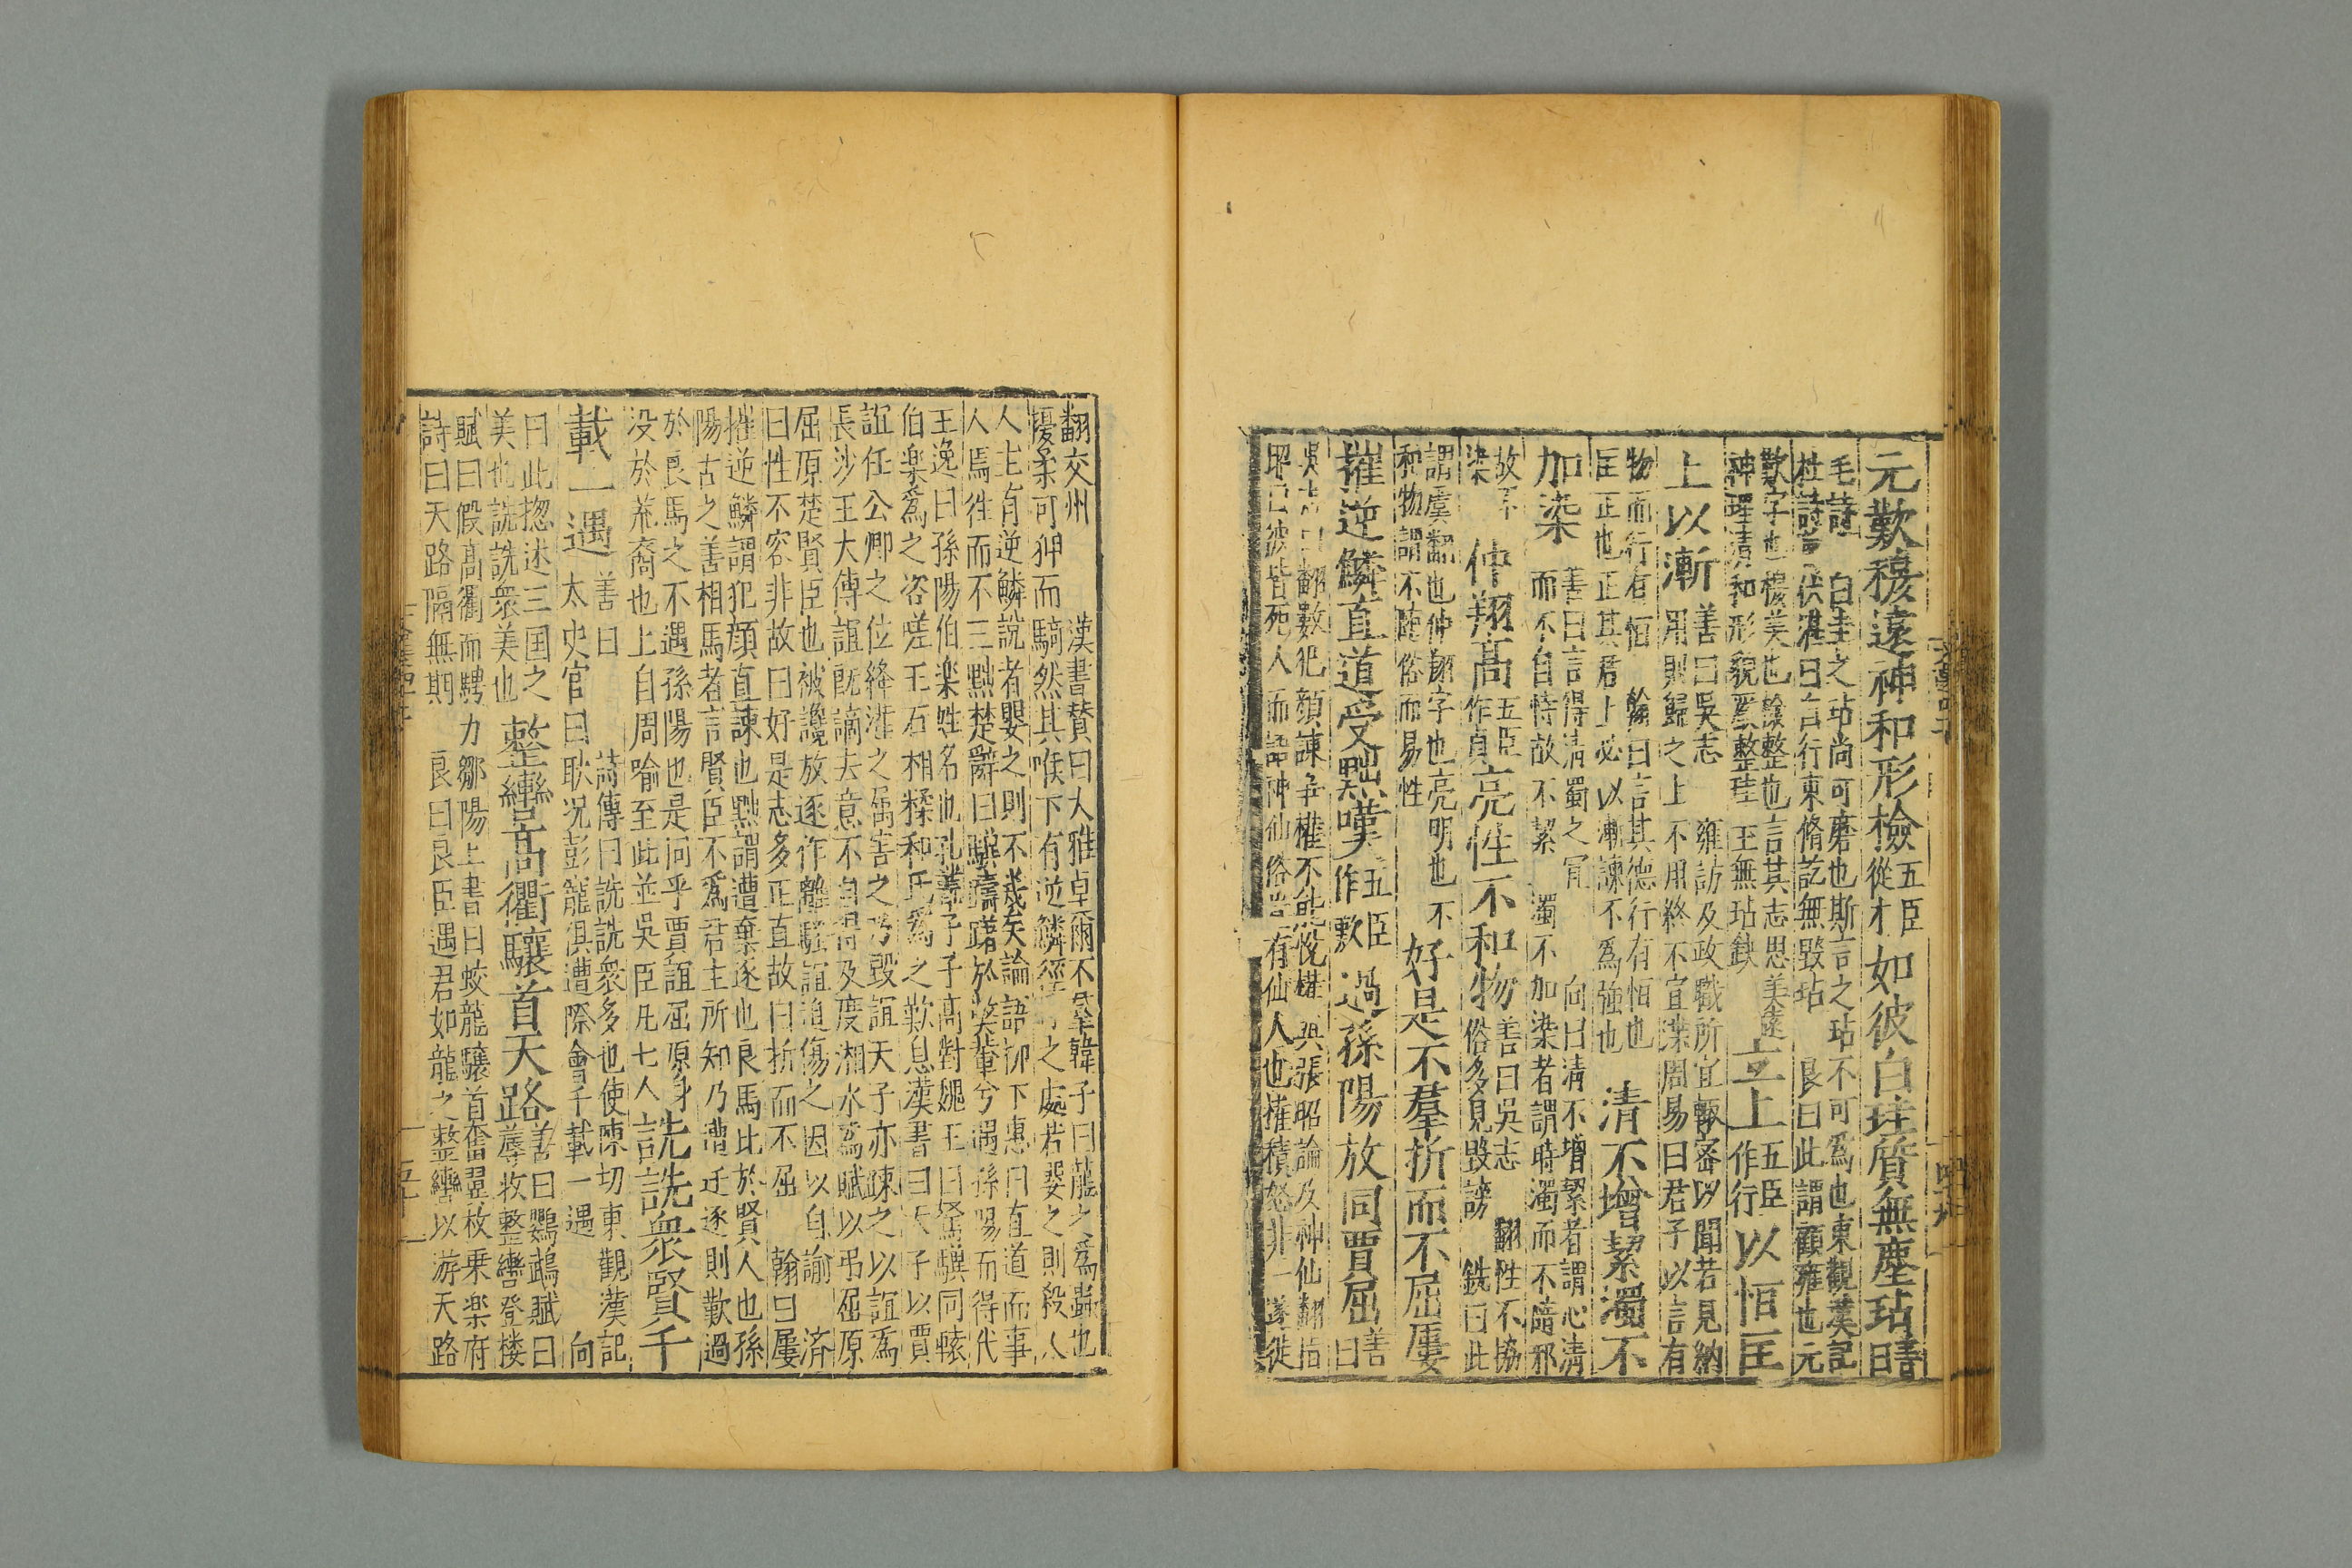 元歎穆遠神和形檢五臣從才如彼白珪質無塵玷善曰
毛詩曰白圭之玷尚可磨也斯言之玷不可為也東觀漢記
杜詩薦伏湛曰自行束脩訖無毀玷　良曰此謂顧雍也元
歎字也穆美也檢整也言其志思美遠
神理清和形貌嚴整珪玉無玷缺
立上五臣作行以恒匡
上以漸
善曰吳志　雍訪及政職所宜輒密以聞若見納
用則歸之上不用終不宣洩周易曰君子以言有
物而行有恒　翰曰言其德行有恒也
匡正也正其君上必以漸諫不為強也
清不增絜濁不
加染
善曰言得清濁之宜　向曰清不增絜者謂心清
而不自恃故不絜　濁不加染者謂時濁而不隨邪
故不
染
仲翔高五臣作貞亮性不和物
善曰吳志　翻性不協
俗多見毀謗　銑曰此
謂虞翻也仲翔字也亮明也不
和物謂不隨俗而易性
好是不羣折而不屈屢
摧逆鱗直道受黜嘆五臣作歎過孫陽放同賈屈善曰
吳志曰翻數犯顏諫爭權不能悅權與張昭論及神仙翻指
昭曰彼皆死人而語神仙俗豈有仙人也權積怒非一遂徙
翻交州　漢書贊曰大雅卓爾不羣韓子曰龍之為蟲也
擾柔可狎而騎然其喉下有逆鱗徑寸之處若嬰之則殺人
人主有逆鱗說者嬰之則不幾矣論語柳下惠曰直道而事
人焉徃而不三黜楚辭曰驥躊躇於獘輂兮遇孫陽而得代
王逸曰孫陽伯楽姓名也孔叢子子高對魏王曰駑驥同轅
伯楽為之咨嗟玉石相糅和氏為之歎息漢書曰天子以賈
誼任公卿之位絳灌之属害之乃毀誼天子亦疎之以誼為
長沙王大傅誼既謫去意不自得及度湘水為賦以弔屈原
屈原楚賢臣也被讒放逐作離騷誼追傷之因以自諭　済
曰性不容非故曰好是志多正直故曰折而不屈　翰曰屢
摧逆鱗謂犯顏直諫也黜謂遭棄逐也良馬比於賢人也孫
陽古之善相馬者言賢臣不為君主所知乃遭迁逐則歎過
於良馬之不遇孫陽也是同乎賈誼屈原身
没於荒裔也上自周喻至此並吳臣凡七人
詵詵衆賢千
載一遇
善曰　詩傳曰詵詵衆多也使陳切東觀漢記
太史官曰耿况彭寵俱遭際會千載一遇　向
曰此惣述三国之
美也詵詵衆美也
整轡高衢驤首天路
善曰鸚鵡賦曰
蓐收整轡登楼
賦曰假高衢而騁力鄒陽上書曰蛟龍驤首奮翼枚乗楽府
詩曰天路隔無期　良曰良臣遇君如龍之整轡以游天路